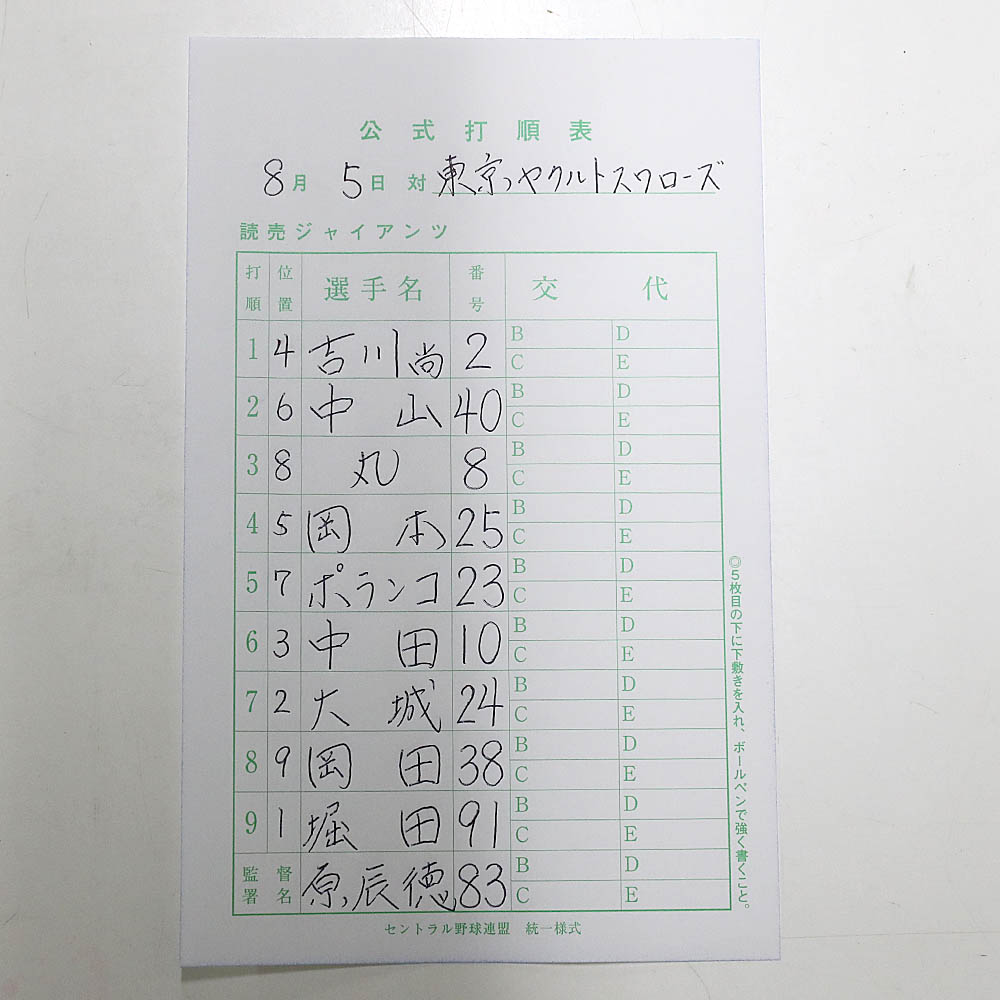 公式打順表
8月 5日 対 東京ヤクルトスワローズ
読売ジャイアンツ
打順 位置 選手名 番号 交代
1 4 吉川尚 2 B D C E
2 6 中山 40 B D C E
3 8 丸 8 B D C E
4 5 岡本 25 B D C E
5 7 ポランコ 23 B D C E
6 3 中田 10 B D C E
7 2 大城 24 B D C E
8 9 岡田 38 B D C E
9 1 堀田 91 B D C E
監督署名 原辰徳 83 B D C E
◎5枚目の下に下敷きを入れ、ボールペンで強く書くこと。
セントラル野球連盟 統一様式